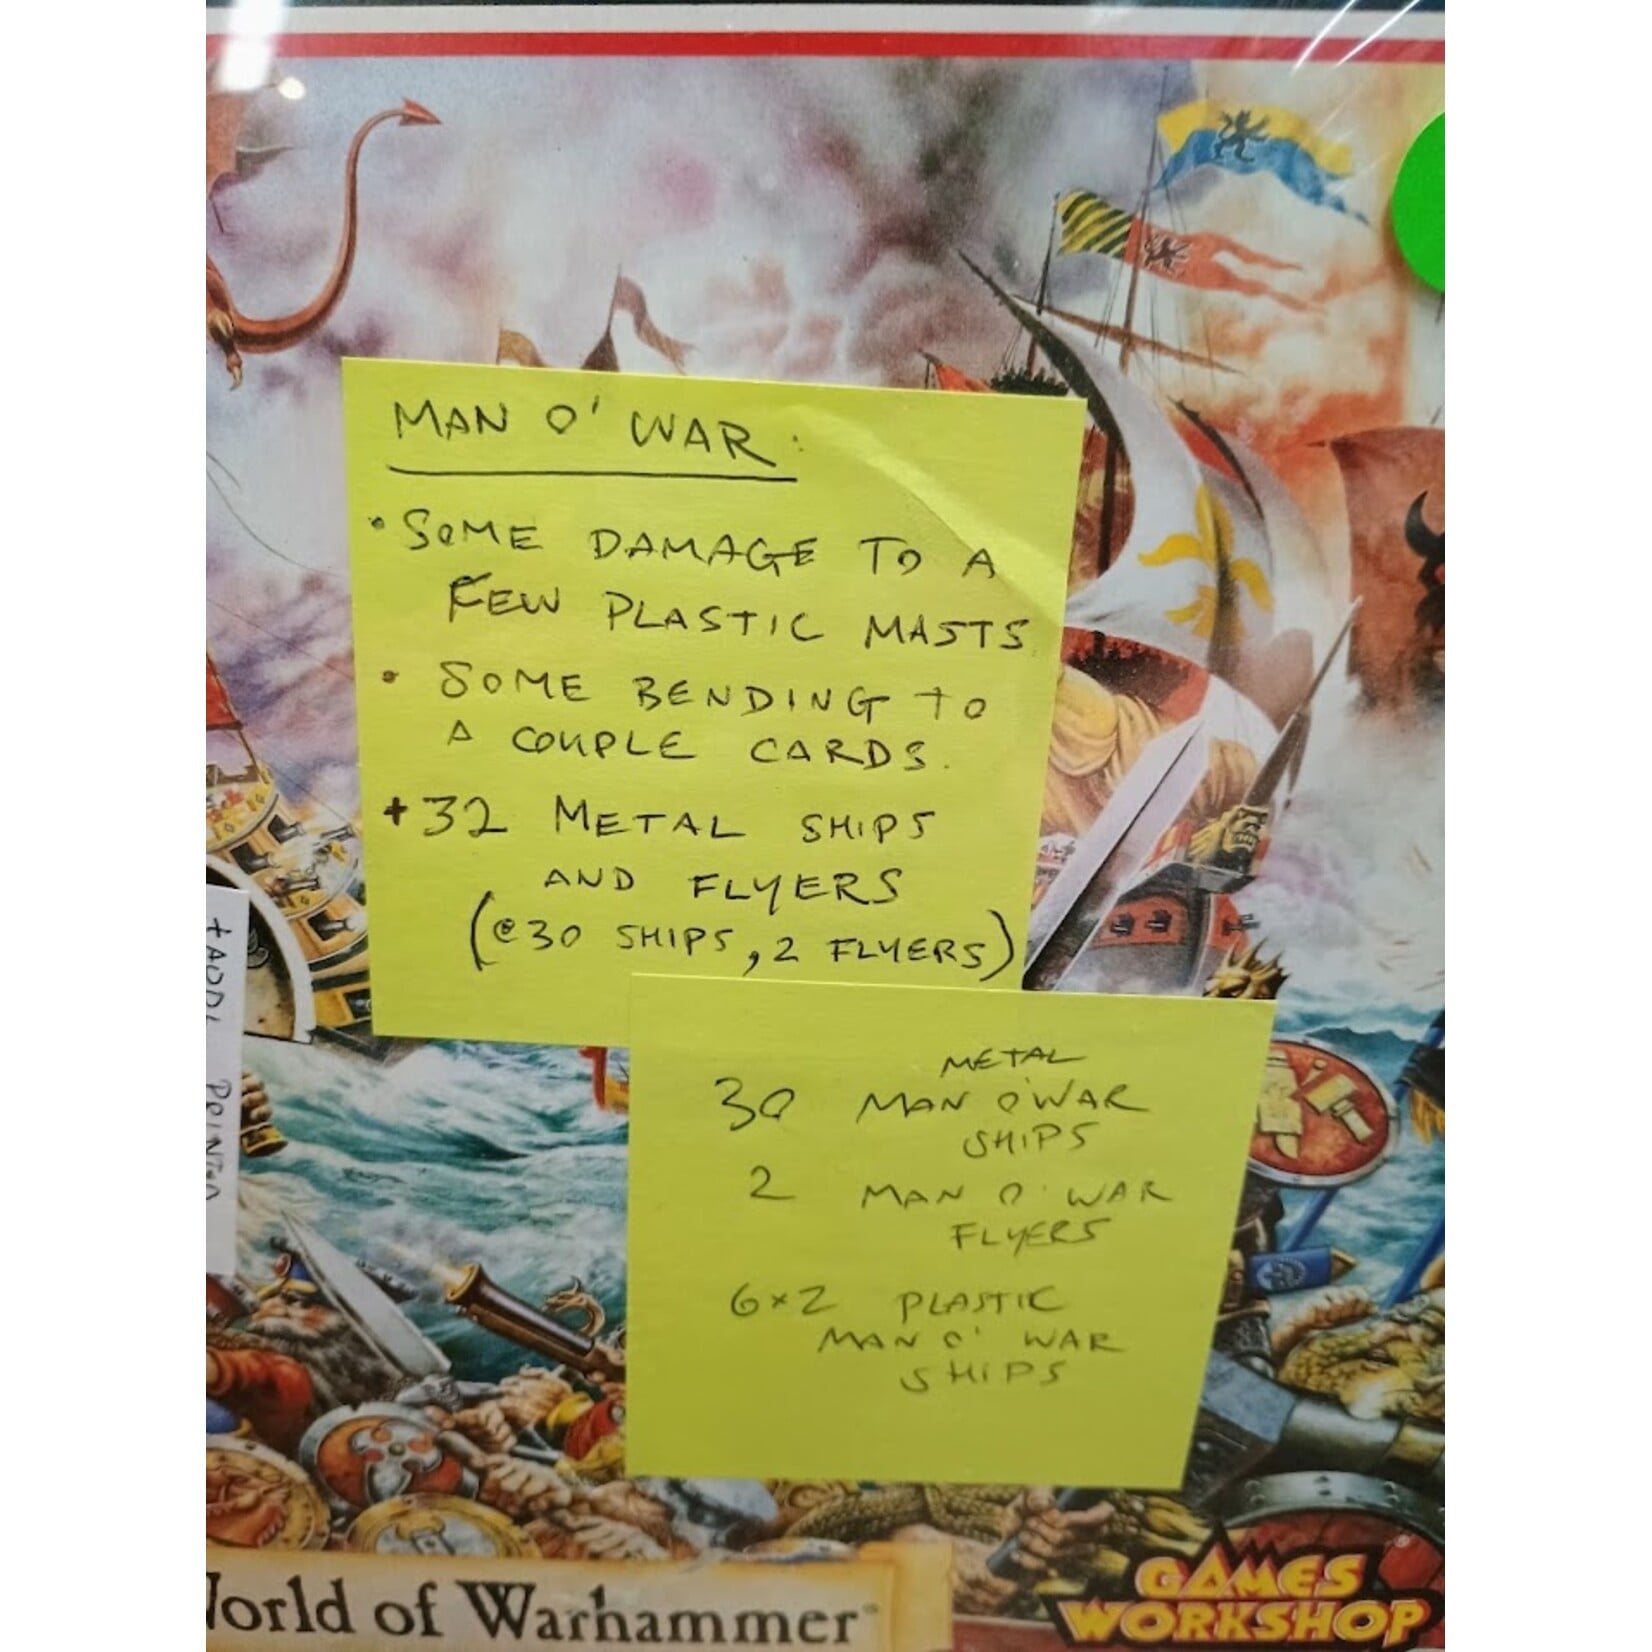 MAN O' WAR:
• SOME DAMAGE TO A
FEW PLASTIC MASTS
• SOME BENDING TO
A COUPLE CARDS.
+32 METAL SHIPS
AND FLYERS
(@30 SHIPS, 2 FLYERS)
METAL
30 MAN O'WAR
SHIPS
2 MAN O' WAR
FLYERS
6x2 PLASTIC
MAN O' WAR
SHIPS
World of Warhammer
GAMES
WORKSHOP